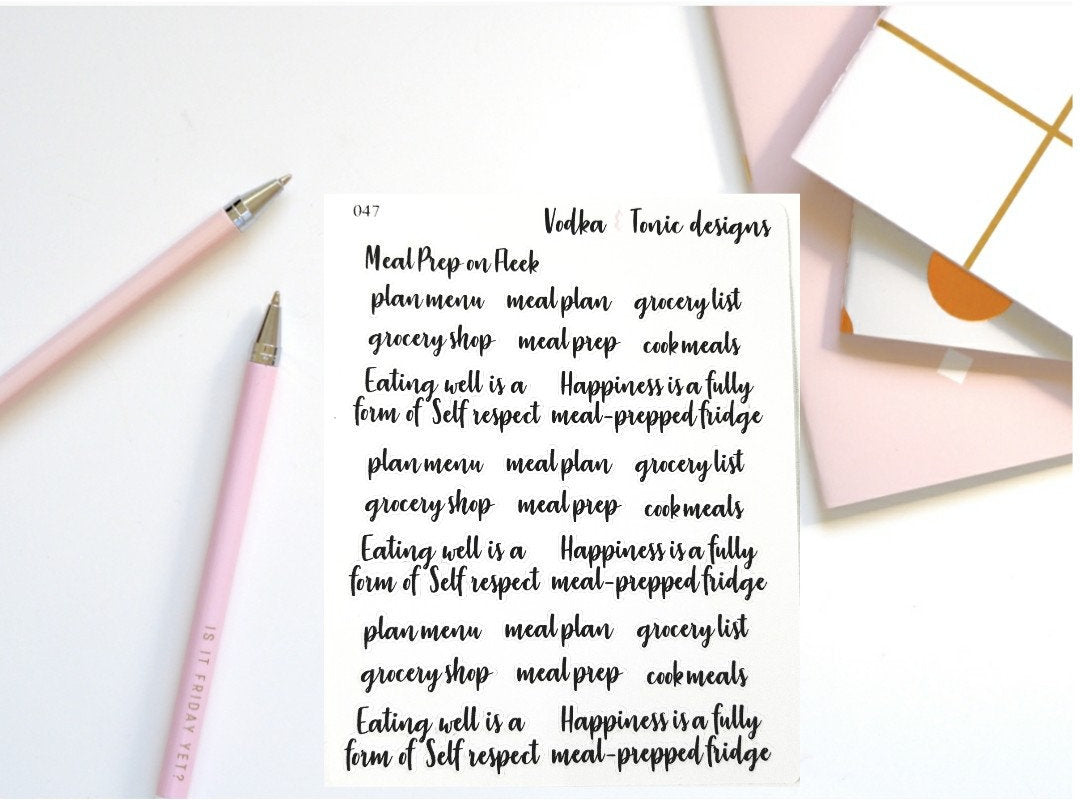 047
Vodka Tonic designs
Meal Prep on Fleek
plan menu meal plan grocery list
grocery shop meal prep cook meals
Eating well is a Happiness is a fully
form of Self respect meal-prepped fridge
plan menu meal plan grocery list
grocery shop meal prep cook meals
Eating well is a Happiness is a fully
form of Self respect meal-prepped fridge
plan menu meal plan grocery list
grocery shop meal prep cook meals
Eating well is a Happiness is a fully
form of Self respect meal-prepped fridge
IS IT FRIDAY YET?